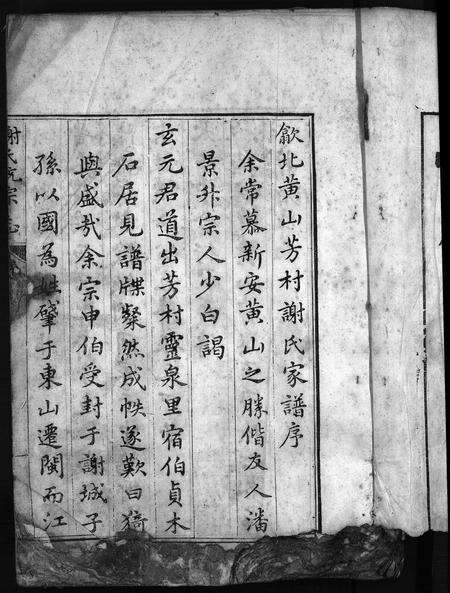 歙北黃山芳村謝氏家譜序
余常慕新安黃山之勝偕友人潘
景升宗人少白謁
玄元君道出芳村靈泉里宿伯貞木
石居見譜牒粲然成帙遂歎曰猗
與盛哉余宗申伯受封于謝城子
孫以國為姓肇于東山遷閩而江
謝氏宗